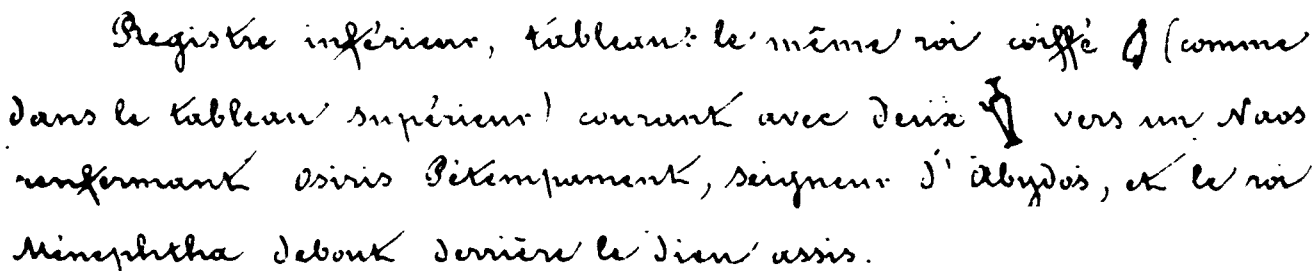 Registre inférieur, tableau: le même roi coiffé (comme
dans le tableau supérieur) courant avec deux vers un Naos
renfermant Osiris Pétempament, seigneur d'Abydos, et le roi
Ménephtha debout derrière le dieu assis.